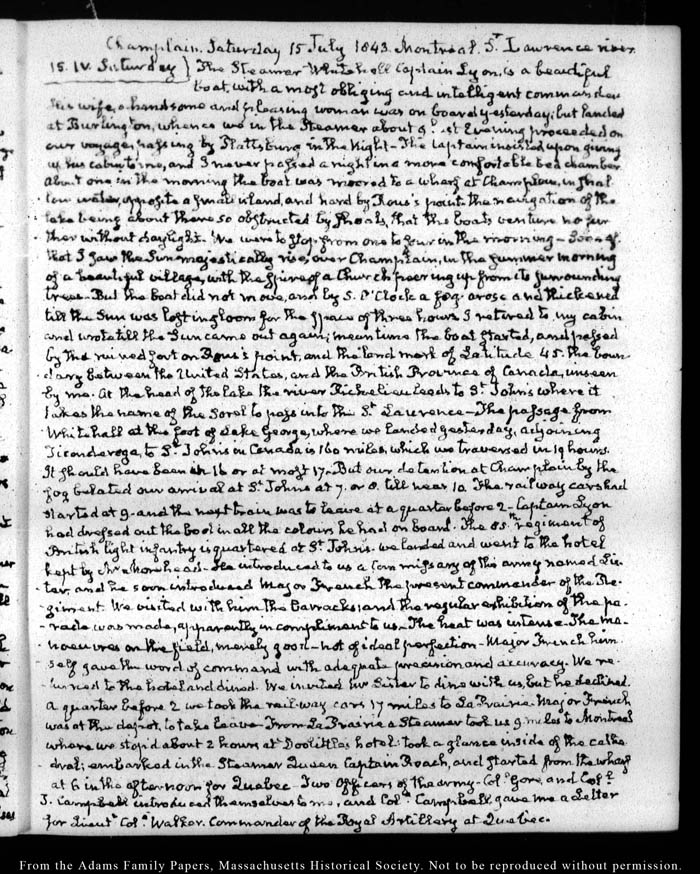 Champlain. Saturday 15 July 1843. Montreal. St Lawrence river.
15. IV. Saturday } The Steamer Whitehall Captain Lyon, is a beautiful
boat, with a most obliging and intelligent commander
His wife, a handsome and pleasing woman was on board yesterday; but landed
at Burlington, whence we in the Steamer about 9 last Evening proceeded on
our voyage, passing by Plattsburg in the Night - The Captain insisted upon giving
up his cabin to me, and I never passed a night in a more comfortable bed chamber
About one in the morning the boat was moored to a wharf at Champlain, in shal-
low water, opposite a small island, and hard by Rous's point the navigation of the
lake being about there so obstructed by shoals, that the boats venture no fur
ther without daylight. We were to stop from one to four in the morning - Soon af-
that I saw the Sun majestically rise, over Champlain, in the summer morning
of a beautiful village, with the spire of a Church peering up from its surrounding
trees. But the boat did not move, and by 5. O'Clock a fog arose and thickened
till the Sun was lost in gloom for the space of three hours I retired to my cabin
and wrote till the Sun came out again; meantime the boat started, and passed
by the ruined fort on Rous's point, and the land mark of Latitude 45. the boun-
dary between the United States, and the British Province of Canada, unseen
by me. At the head of the lake the river Richelieu leads to St Johns where it
takes the name of the Sorel to pass into the St Lawrence - The passage from
Whitehall at the foot of Lake George, where we landed yesterday, adjoining
Ticonderoga, to St Johns in Canada is 160 miles, which we traversed in 19 hours.
It should have been in 16 or at most 17. But our detention at Champlain by the
fog belated our arrival at St Johns at 7. or 8. till near 10. The railway cars had
started at 9. and the next train was to leave at a quarter before 2 - Captain Lyon
had dressed out the boat in all the colours he had on board. The 85th regiment of
British light infantry is quartered at St Johns. we landed and went to the hotel
kept by Mr Morehead. He introduced us to a Commissary of the army named Lis-
ter, and he soon introduced Major French the present commander of the Re-
giment. We visited with him the Barracks; and the regular exhibition of the pa-
rade was made, apparently in compliment to us - The heat was intense - The ma-
noeuvres on the field, merely good - not of ideal perfection - Major French him
self gave the word of command with adequate precision and accuracy. We re-
turned to the hotel and dined. We invited Mr Lister to dine with us, but he declined.
A quarter before 2 we took the rail-way cars 17 miles to La Prairie. Major French
was at the depot, to take leave. From La Prairie a Steamer took us 9 miles to Montreal
where we stop'd about 2 hours at Doolittle's hotel: took a glance inside of the cathe-
dral; embarked in the Steamer Queen Captain Roach, and started from the wharf
at 6 in the afternoon for Quebec. Two Officers of the army - Col. Gore, and Col.
J. Campbell introduced themselves to me, and Col. Campbell gave me a Letter
for Lieut. Col. Walker. Commander of the Royal Artillery at Quebec.
From the Adams Family Papers, Massachusetts Historical Society. Not to be reproduced without permission.